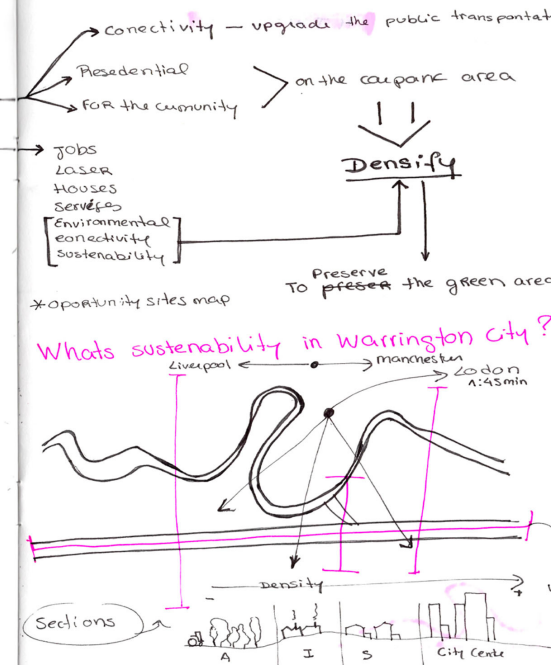 Conectivity — upgrade the public transpontat
Resedential
FOR the cumunity
on the carpark area
Densify
Jobs
Laser
Houses
Servises
[Environmental
conectivity
sustenability]
To preser the green area
Preserve
*oportunity sites map
Whats sustenability in Warrington City?
Liverpool
manchester
Lodon
1:45min
Density
- +
Sections
A I S City Cente